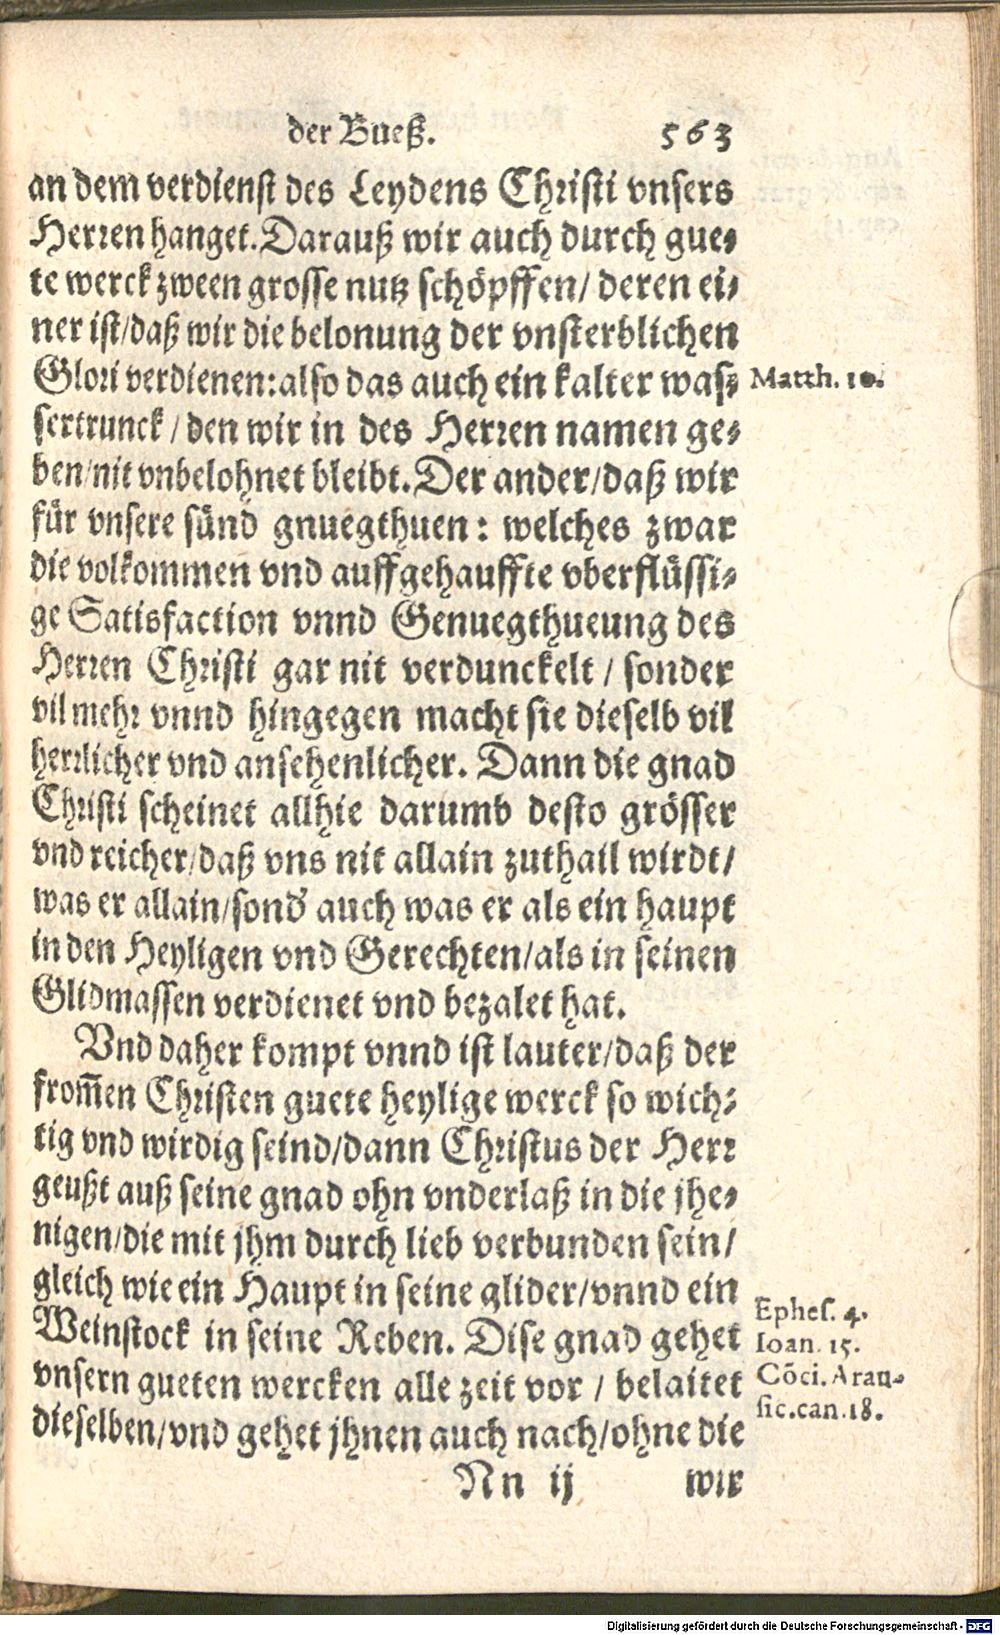 der Bueß. 563
an dem verdienst des Leydens Christi vnsers
Herren hanget. Darauß wir auch durch gue-
te werck zween grosse nutz schöpffen/ deren ei-
ner ist/daß wir die belonung der vnsterblichen
Glori verdienen: also das auch ein kalter was- Matth. 10.
sertrunck / den wir in des Herren namen ge-
ben/nit vnbelohnet bleibt. Der ander/daß wir
für vnsere sünd gnuegthuen: welches zwar
die volkommen vnd auffgehauffte vberflüssi-
ge Satisfaction vnnd Genuegthueung des
Herren Christi gar nit verdunckelt / sonder
vil mehr vnnd hingegen macht sie dieselb vil
herrlicher vnd ansehenlicher. Dann die gnad
Christi scheinet allhie darumb desto grösser
vnd reicher/daß vns nit allain zuthail wirdt/
was er allain/sond' auch was er als ein haupt
in den Heyligen vnd Gerechten/als in seinen
Glidmassen verdienet vnd bezalet hat.
Vnd daher kompt vnnd ist lauter/daß der
from̃en Christen guete heylige werck so wich-
tig vnd wirdig seind/dann Christus der Herr
geußt auß seine gnad ohn vnderlaß in die jhe-
nigen/die mit jhm durch lieb verbunden sein/
gleich wie ein Haupt in seine glider/vnnd ein
Ephes. 4.
Weinstock in seine Reben. Dise gnad gehet Ioan. 15.
vnsern gueten wercken alle zeit vor / belaitet Cõci. Arau-
dieselben/vnd gehet jhnen auch nach/ohne die sic.can.18.
Nn ij wir
Digitalisierung gefördert durch die Deutsche Forschungsgemeinschaft - DFG